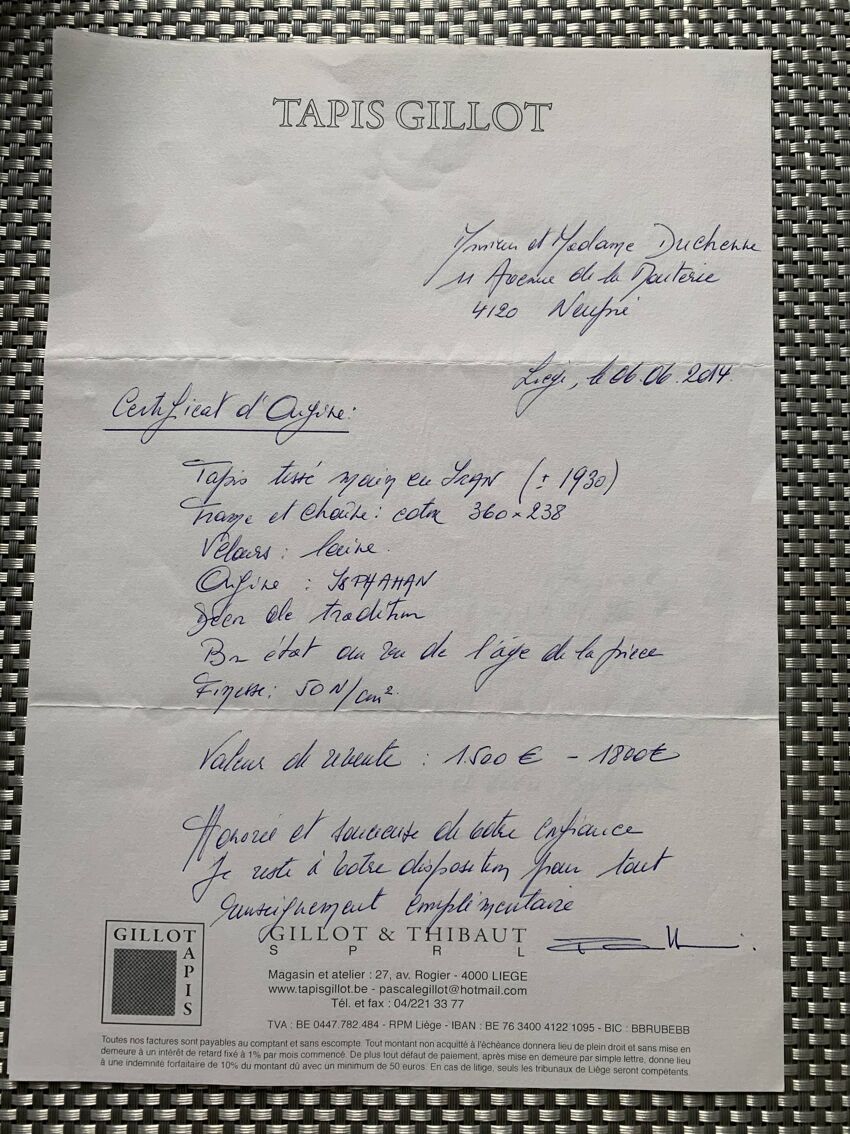 TAPIS GILLOT
Monsieur et Madame Duchenne
11 Avenue de la
4120 Neupré
Liège, le 06.06.2014.
Certificat d'Origine:
Tapis tissé main en IRAN (± 1930)
Trame et Chaîne: coton 360 x 238
Velours: laine.
Origine : ISPHAHAN
Décor de tradition
Bon état au vu de l'âge de la pièce
Finesse: 50 N/cm².
Valeur de revente : 1.500 € - 1800€
Honorée et soucieuse de votre confiance
Je reste à votre disposition pour tout
renseignement complémentaire
GILLOT TAPIS
GILLOT & THIBAUT
S P R L
Magasin et atelier : 27, av. Rogier - 4000 LIEGE
www.tapisgillot.be - pascalegillot@hotmail.com
Tél. et fax : 04/221 33 77
TVA : BE 0447.782.484 - RPM Liège - IBAN : BE 76 3400 4122 1095 - BIC : BBRUBEBB
Toutes nos factures sont payables au comptant et sans escompte. Tout montant non acquitté à l'échéance donnera lieu de plein droit et sans mise en
demeure à un intérêt de retard fixé à 1% par mois commencé. De plus tout défaut de paiement, après mise en demeure par simple lettre, donne lieu
à une indemnite forfaitaire de 10% du montant dû avec un minimum de 50 euros. En cas de litige, seuls les tribunaux de Liège seront compétents.